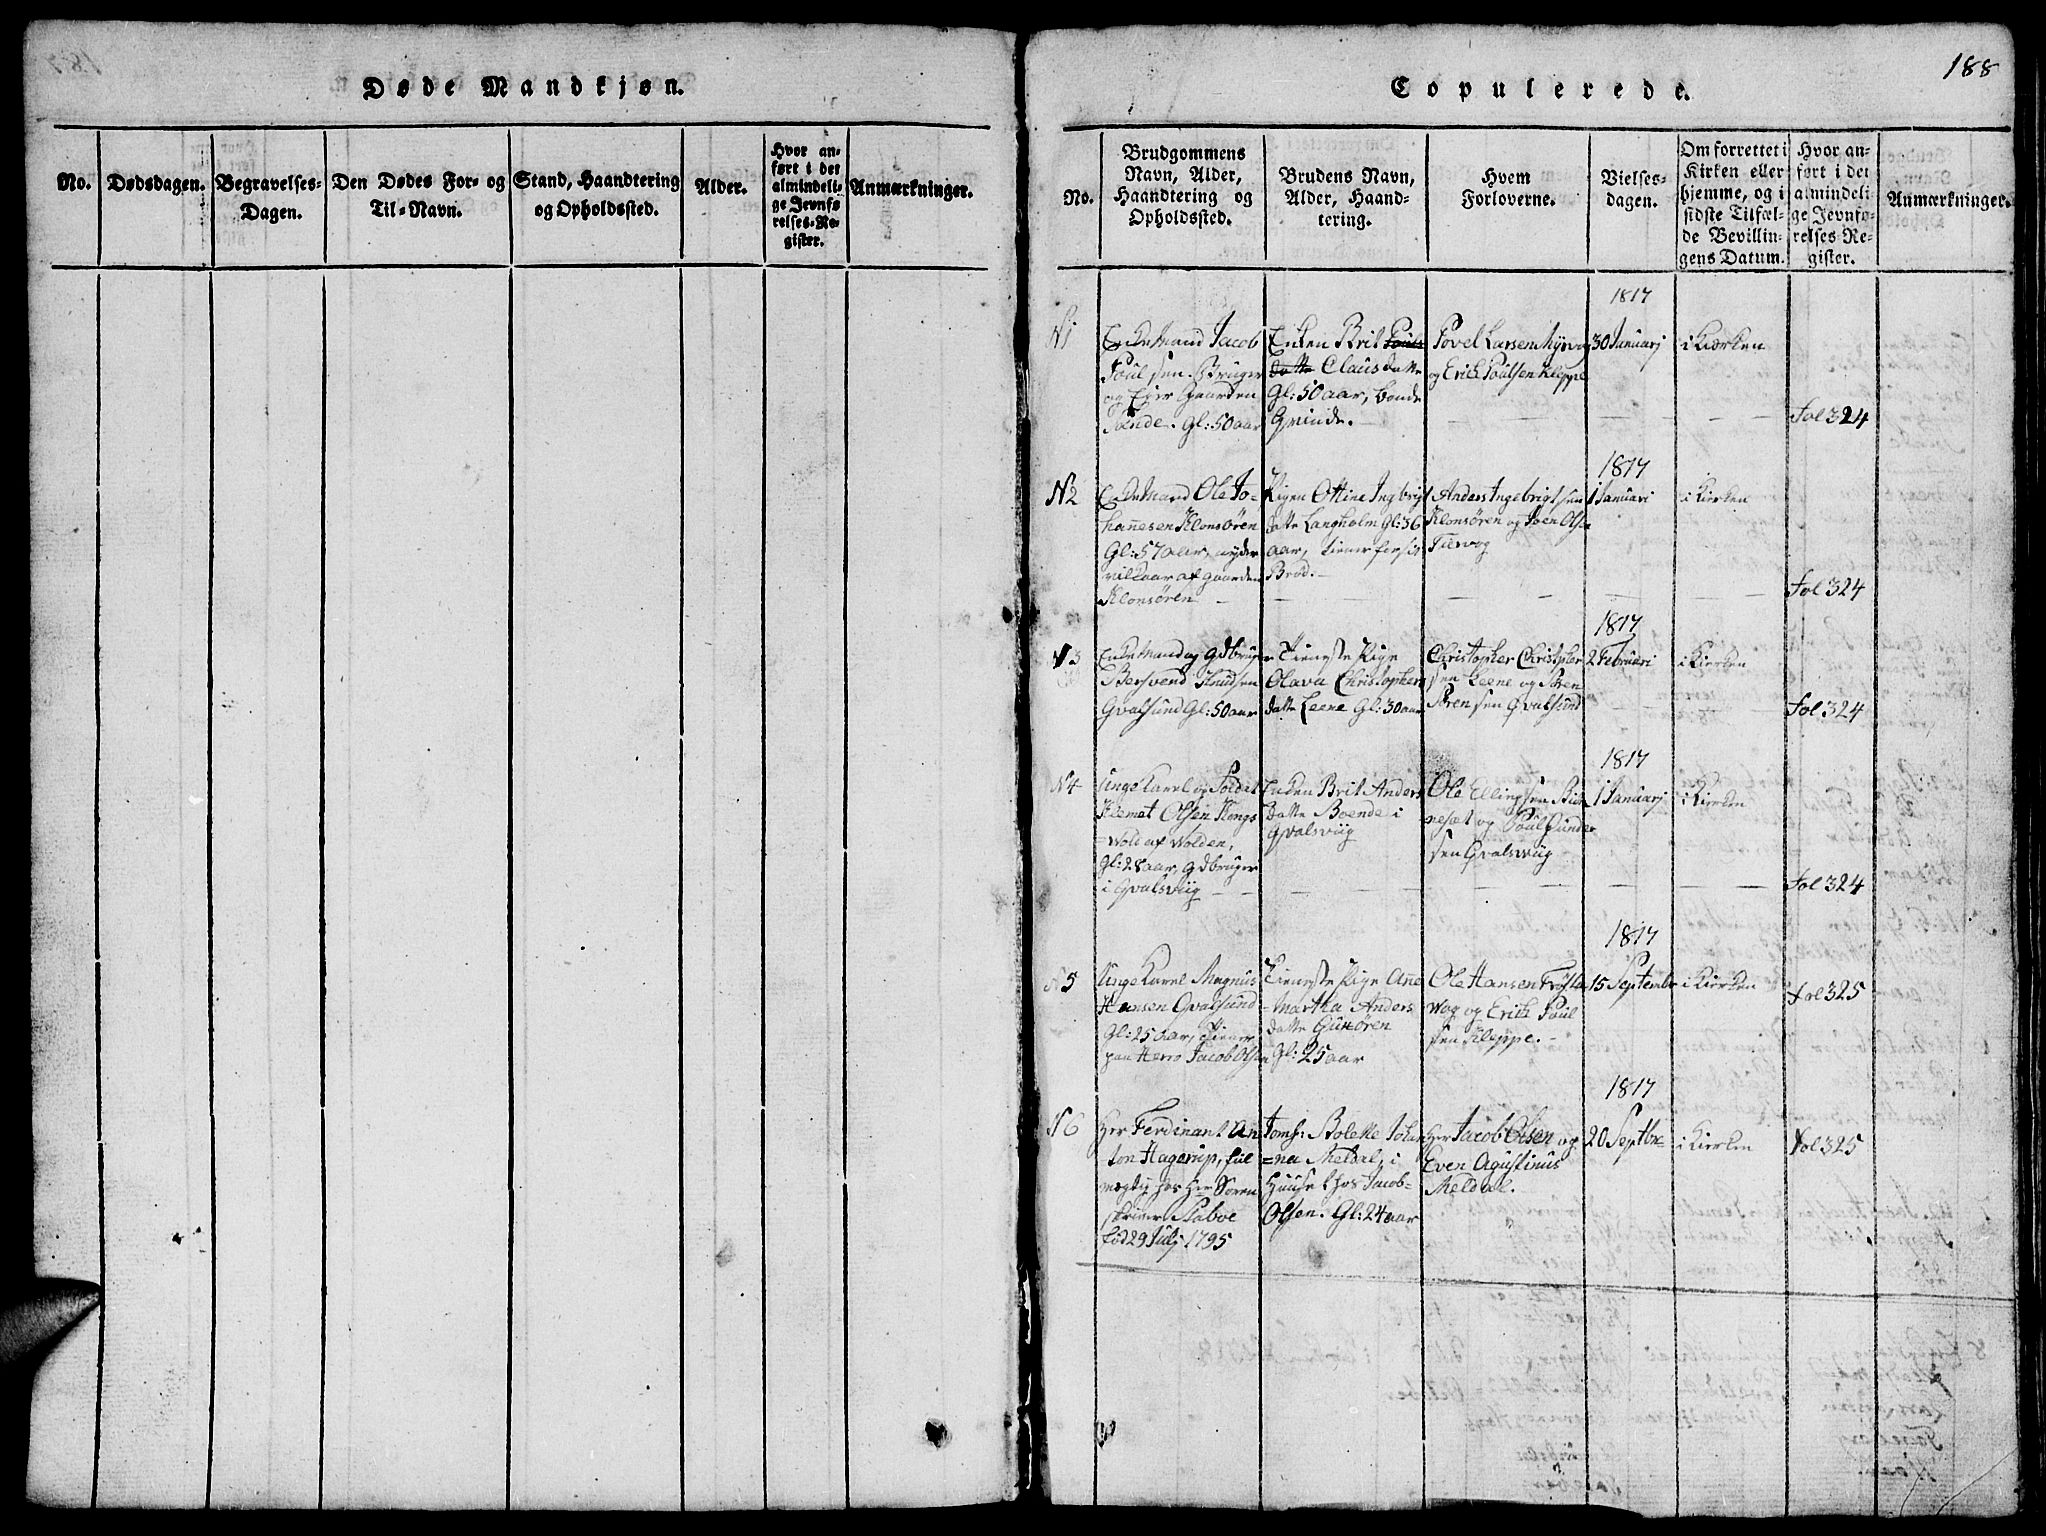 188
Døde Mandkjøn.
No.
Dødsdagen.
Begravelses-
Dagen.
Den Dødes For- og
Til-Navn.
Stand, Haandtering
og Opholdssted.
Alder.
Hvor an-
ført i det
almindeli-
ge Jevnfø
relses-Re-
gister.
Anmærkninger.
Copulerede.
No.
Brudgommens
Navn, Alder,
Haandtering og
Opholdssted.
Brudens Navn,
Alder, Haand-
tering.
Hvem
Forloverne.
Vielses-
dagen.
Om forrettet i
Kirken eller
hjemme, og i
sidste Tilfæl-
de Bevillin-
gens Datum.
Hvor an-
ført i det
almindeli-
ge Jevnfø-
relses-Re-
gister.
Anmærkninger.
N1
Enkemand Jacob
Poulsen. Bruger
og Eier Gaarden
Sande. Gl: 50 aar
Enken Brit Pouls
datte Clausdatte
Gl: 50 aar, boende
Grinde.
Povel Larsen Myrvog
og Erick Poulsen Kleppe
1817
30 Januarj
i Kierken
Fol 324
N2
Enkemand Ole Jo-
hanesen Klonsören
Gl: 57 aar, nyder
vilkaar af gaarden
Klonsören
Pigen Ottine Ingbrigt
datte Langholm Gl: 36
aar, tiener for sit
Bröd.
Anders Ingebrigtsen
Klonsören og Joen Olsen
1817
1 Januari
i Kierken
Fol 324
N3
Enkemand og Gdbruger
Bersvend Knudsen
Gvalsund Gl: 50 aar
Tieneste Pige
Olava Christophers
datte Leene Gl: 30 aar
Christopher Christopher
sen Leene og Sören
Sörensen Qvalsund
1817
2 Februari
i Kierken
Fol 324
N4
Unge Karel og Soldat
Klemet Olsen Kongs
Wold af Wolden,
Gl: 28 aar, Gdbruger
i Qvalsviig
Enken Brit Anders
datte Boende i
Qvalsviig
Ole Ellingsen
nesæt og Poul Gunder
sen Qvalsviig
1817
1 Januarj
i Kierken
Fol 324
N5
Unge Karel Magnus
Hansen Qvalsund
Gl: 25 aar, tiener
paa Herrö Jacob Olsen
Tieneste Pige Ane
Martha Anders
datte Gunören
Gl: 25 aar
Ole Hansen Fröstad
Wog og Erick Poul
sen Kleppe.
1817
15 Septembr
i Kierken
Fol 325
N6
Her Ferdinant An
ton Hagerup, ful
mægtig hos Her Soren
skriver Stabve
föd 29 Julj 1795
Jomf: Bolette Johan
=na Meldal, i
Huuset hos Jacob
Olsen. Gl: 24 aar
Her Jacob Olsen og
Even Agustinus
Meldal.
1817
20 Septbr
i Kierken
Fol 325